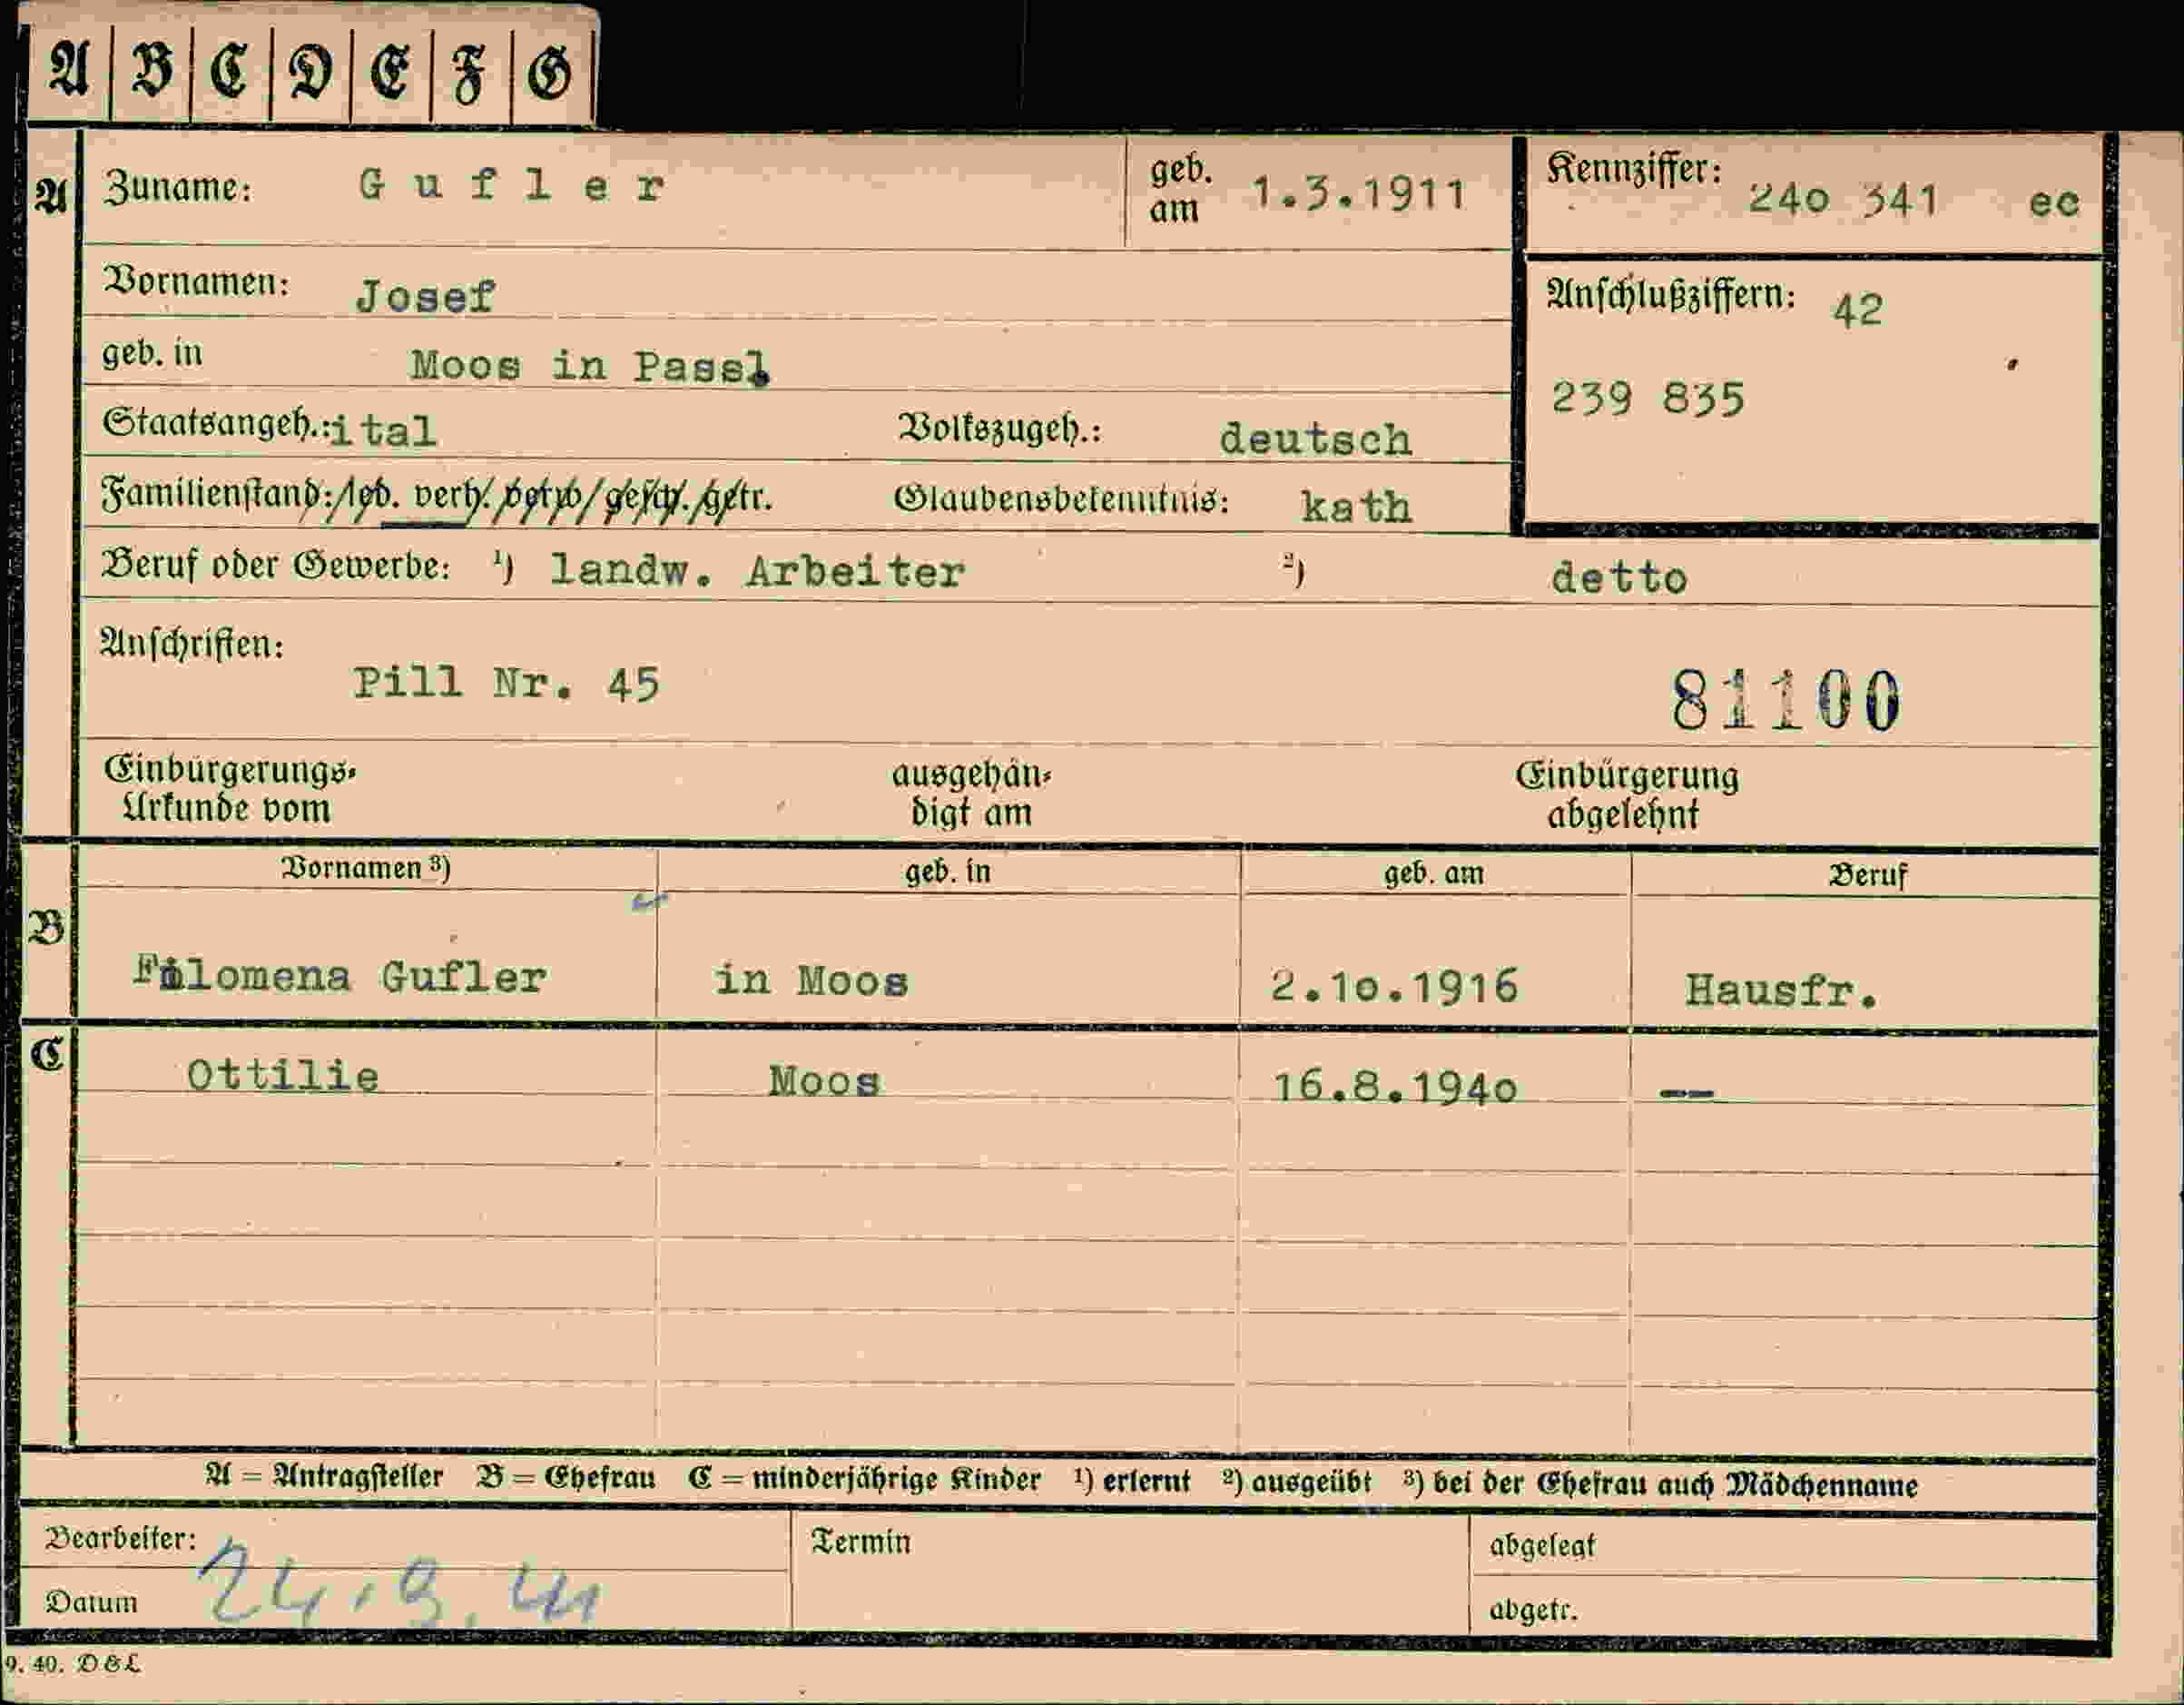 A B C D E F G
A Zuname: Gufler geb. am 1.3.1911 Kennziffer: 24o 341 ec
Vornamen: Josef Anschlußziffern: 42
geb. in Moos in Passl
239 835
Staatsangeh.: ital Volkszugeh.: deutsch
Familienstand: led. verh. verw. gesch. getr. Glaubensbekenntnis: kath
Beruf oder Gewerbe: ¹) landw. Arbeiter ²) detto
Anschriften:
Pill Nr. 45 81100
Einbürgerungs- ausgehän- Einbürgerung
Urkunde vom digt am abgelehnt
Vornamen ³) geb. in geb. am Beruf
B
Filomena Gufler in Moos 2.1o.1916 Hausfr.
C Ottilie Moos 16.8.194o --
A = Antragsteller B = Ehefrau C = minderjährige Kinder ¹) erlernt ²) ausgeübt ³) bei der Ehefrau auch Mädchenname
Bearbeiter: Termin abgelegt
Datum 24.9.41 abgetr.
9. 40. D&L